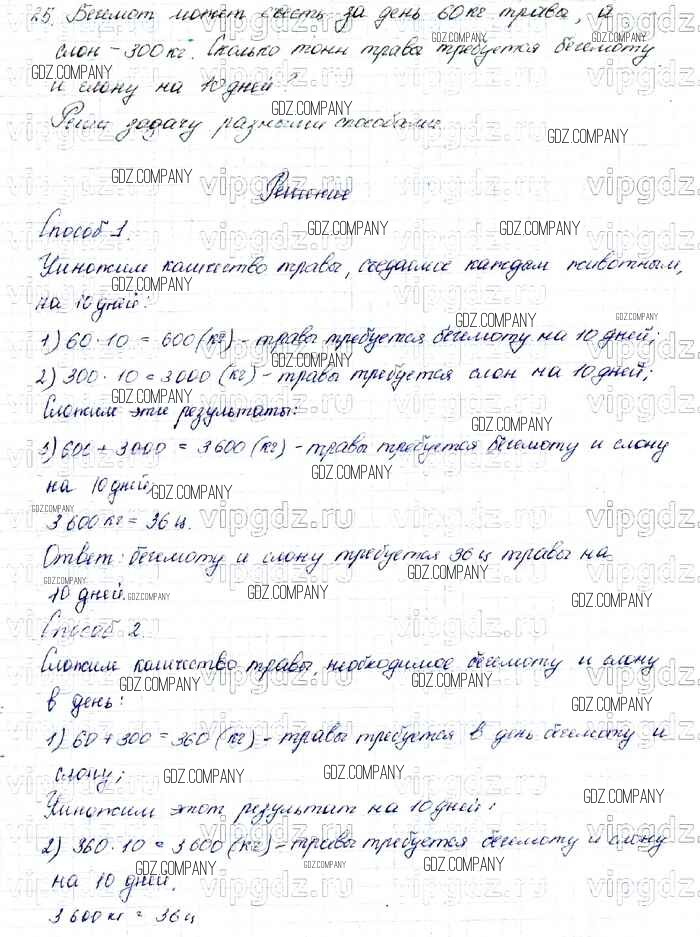 25. Бегемот может съесть за день 60 кг травы, а
слон - 300 кг. Сколько тонн травы требуется бегемоту
и слону на 10 дней?
Реши задачу разными способами.
Решение
Способ 1.
Умножим количество травы, съедаемое каждым животным,
на 10 дней:
1) 60 · 10 = 600 (кг) - травы требуется бегемоту на 10 дней;
2) 300 · 10 = 3000 (кг) - травы требуется слон на 10 дней;
Сложим эти результаты:
3) 600 + 3000 = 3600 (кг) - травы требуется бегемоту и слону
на 10 дней.
3 600 кг = 36 ц.
Ответ: бегемоту и слону требуется 36 ц травы на
10 дней.
Способ 2.
Сложим количество травы, необходимое бегемоту и слону
в день:
1) 60 + 300 = 360 (кг) - травы требуется в день бегемоту и
слону;
Умножим этот результат на 10 дней:
2) 360 · 10 = 3 600 (кг) - травы требуется бегемоту и слону
на 10 дней.
3 600 кг = 36 ц
GDZ.COMPANY
vipgdz.ru